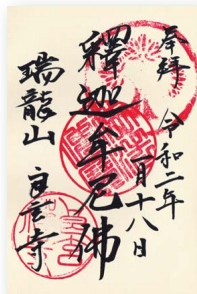 奉拝
令和二年
一月十八日
釋迦牟尼佛
瑞龍山
白雲寺